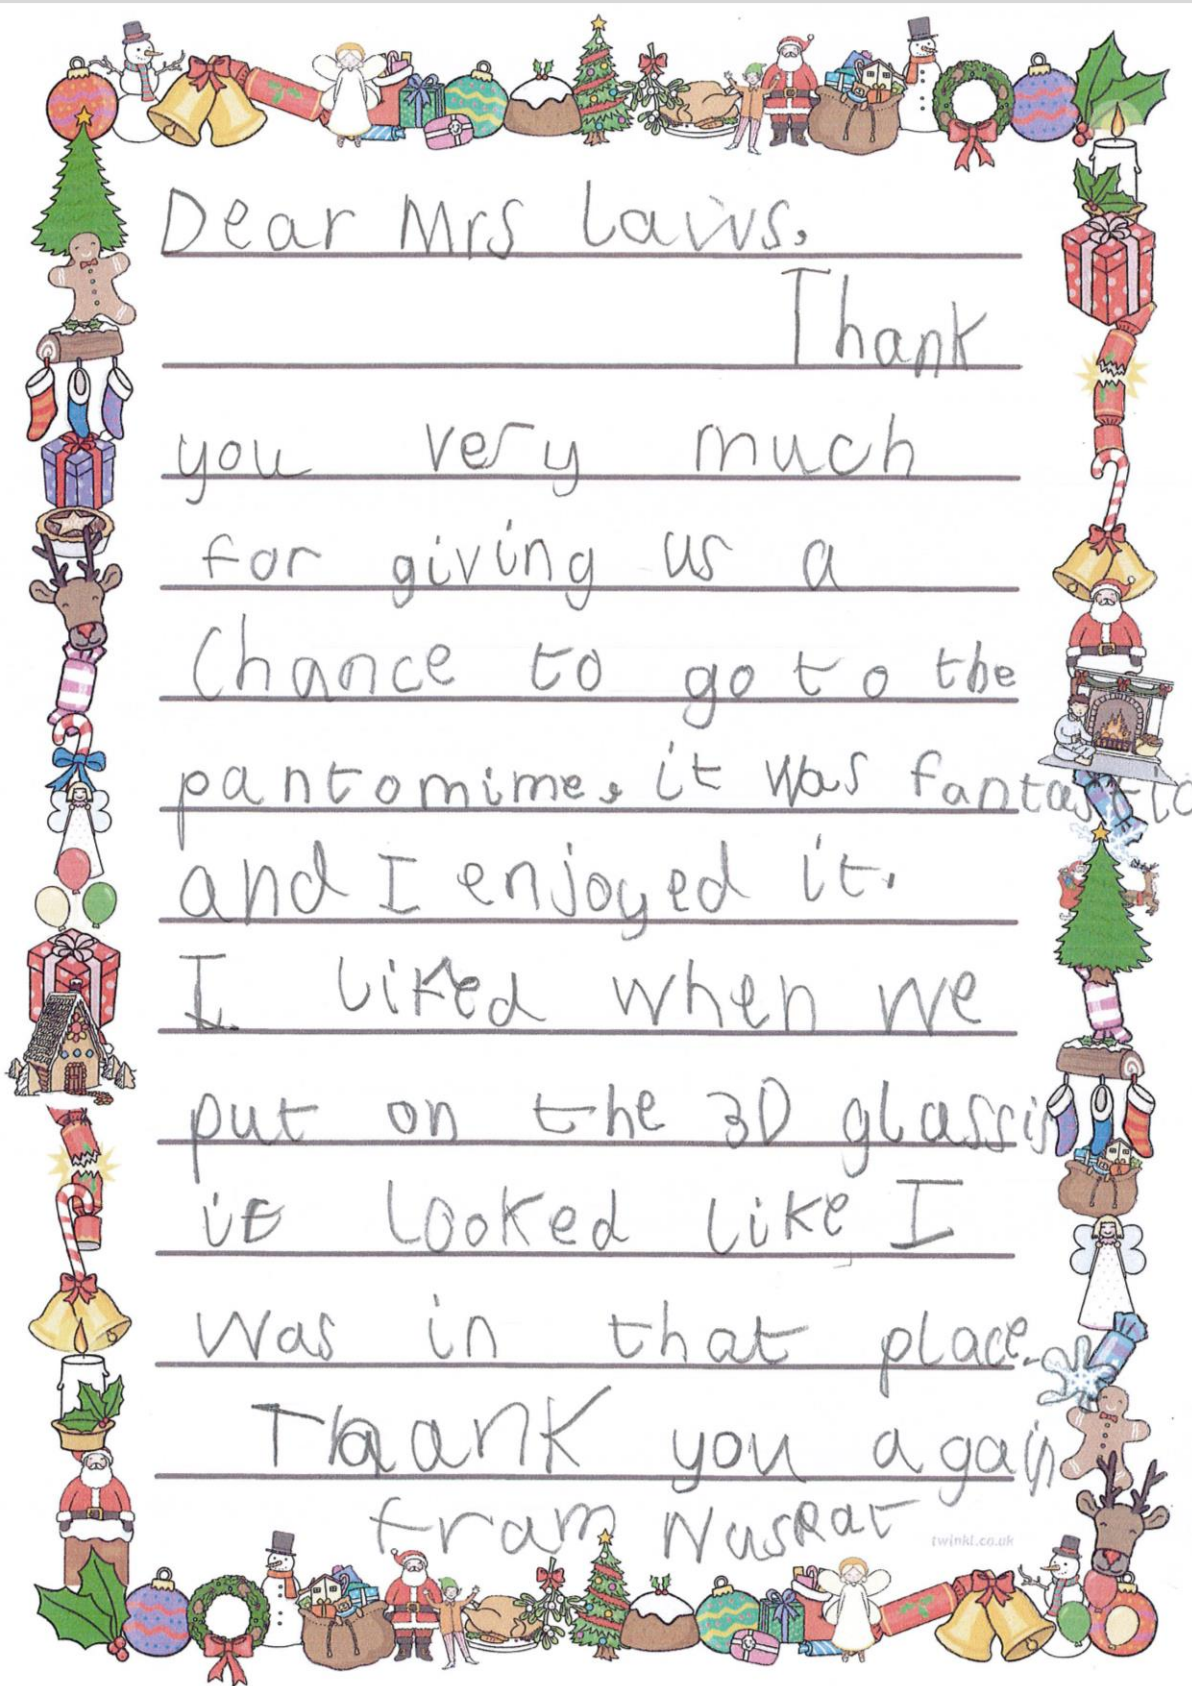 Dear Mrs Laws,
Thank
you very much
for giving us a
Chance to go to the
pantomime, it was fantastic
and I enjoyed it.
I liked when we
put on the 3D glassis
it looked like I
was in that place.
Thank you again
fram Nusrat
twinkl.co.uk